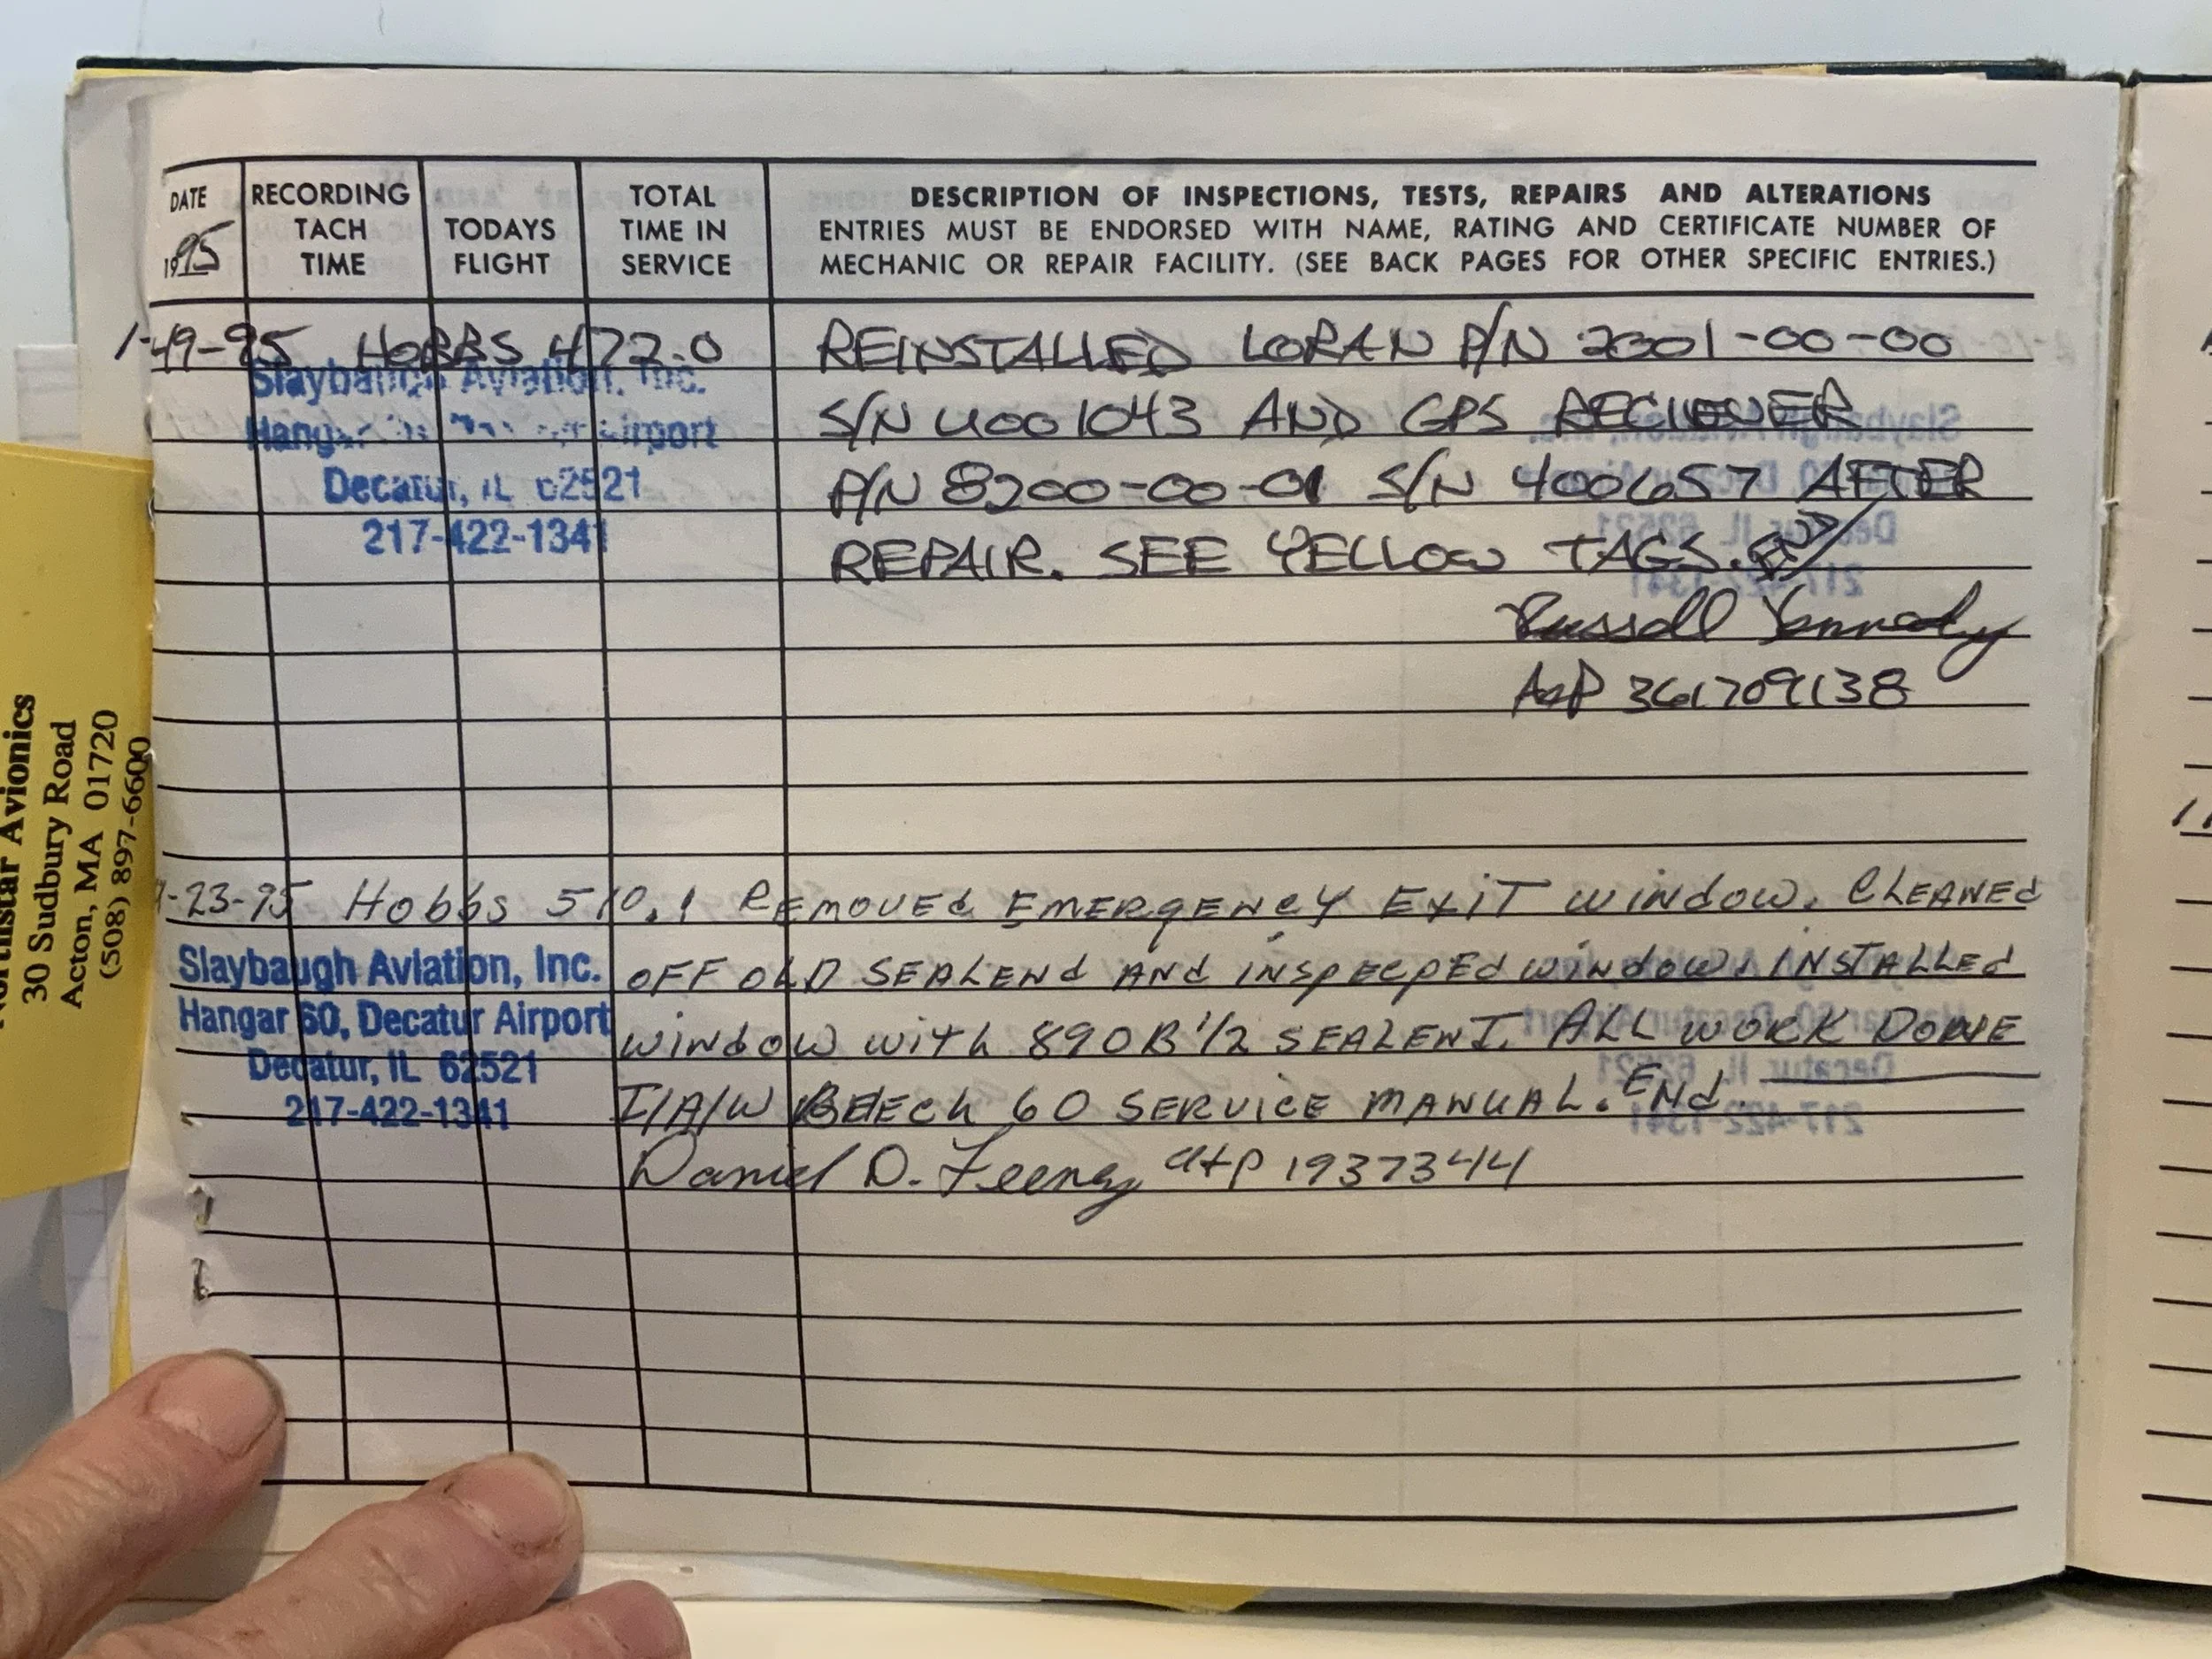 DATE
1995
RECORDING
TACH
TIME
TODAYS
FLIGHT
TOTAL
TIME IN
SERVICE
DESCRIPTION OF INSPECTIONS, TESTS, REPAIRS AND ALTERATIONS
ENTRIES MUST BE ENDORSED WITH NAME, RATING AND CERTIFICATE NUMBER OF
MECHANIC OR REPAIR FACILITY. (SEE BACK PAGES FOR OTHER SPECIFIC ENTRIES.)
1-19-95 HOBBS 472.0 REINSTALLED LORAN P/N 2001-00-00
S/N U001043 AND GPS RECIEVER
P/N 8200-00-01 S/N 400657 AFTER
REPAIR. SEE YELLOW TAGS.
Russell
A&P 361709138
Slaybaugh Aviation, Inc.
Airport
Decatur, IL 62521
217-422-1341
-23-95 Hobbs 510.1 REMOVEd EMERGENCY EXIT WINdOW. CLEANEd
OFF OLD SEALENd ANd INSPECPEd WINdOW. INSTALLEd
WINdOW WITh 890B 1/2 SEALENT. ALL WORK DONE
I/A/W BEECh 60 SERVICE MANUAL. ENd.
Daniel D. Feeney A+P 1937344
Slaybaugh Aviation, Inc.
Hangar 60, Decatur Airport
Decatur, IL 62521
217-422-1341
Northstar Avionics
30 Sudbury Road
Acton, MA 01720
(508) 897-6600